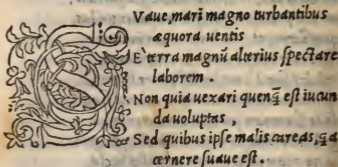 SVaue, mari magno turbantibus
æquora uentis
E' terra magnũ alterius spectare
laborem.
Non quia uexari quenq̃ est iucun
da uoluptas,
Sed quibus ipse malis careas, q̃a
cernere suaue est.